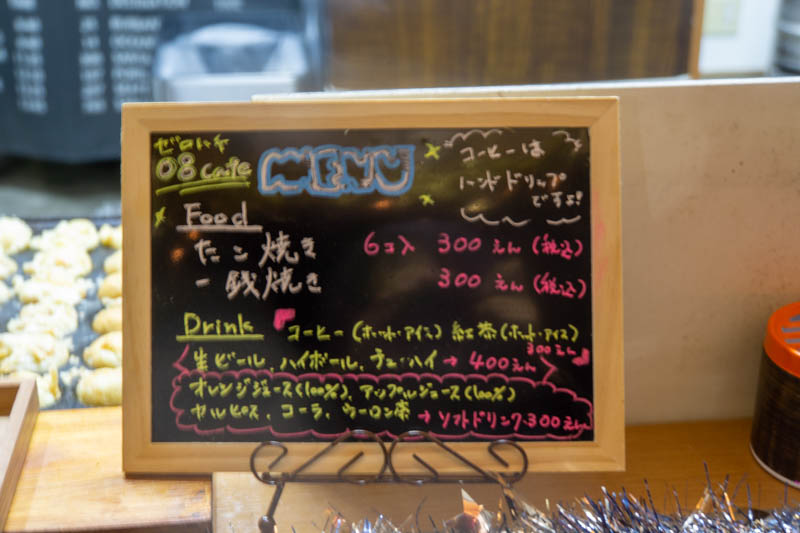 ゼロハチ
08 cafe
MENU
コーヒーは
ハンドドリップ
ですよ!
Food
たこ焼き 6コ入 300えん(税込)
一銭焼き 300えん(税込)
Drink コーヒー(ホット・アイス) 紅茶(ホット・アイス)
300えん
生ビール、ハイボール、チューハイ→400えん
オレンジジュース(100%)、アップルジュース(100%)
カルピス、コーラ、ウーロン茶→ソフトドリンク300えん